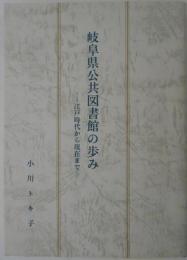 岐阜県公共図書館の歩み
―江戸時代から現在まで―
小川トキ子